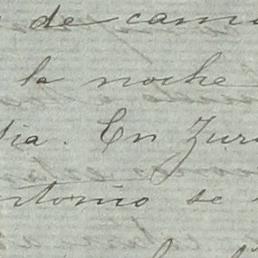 de cam
la noche
ia. En Zur
ntonio se